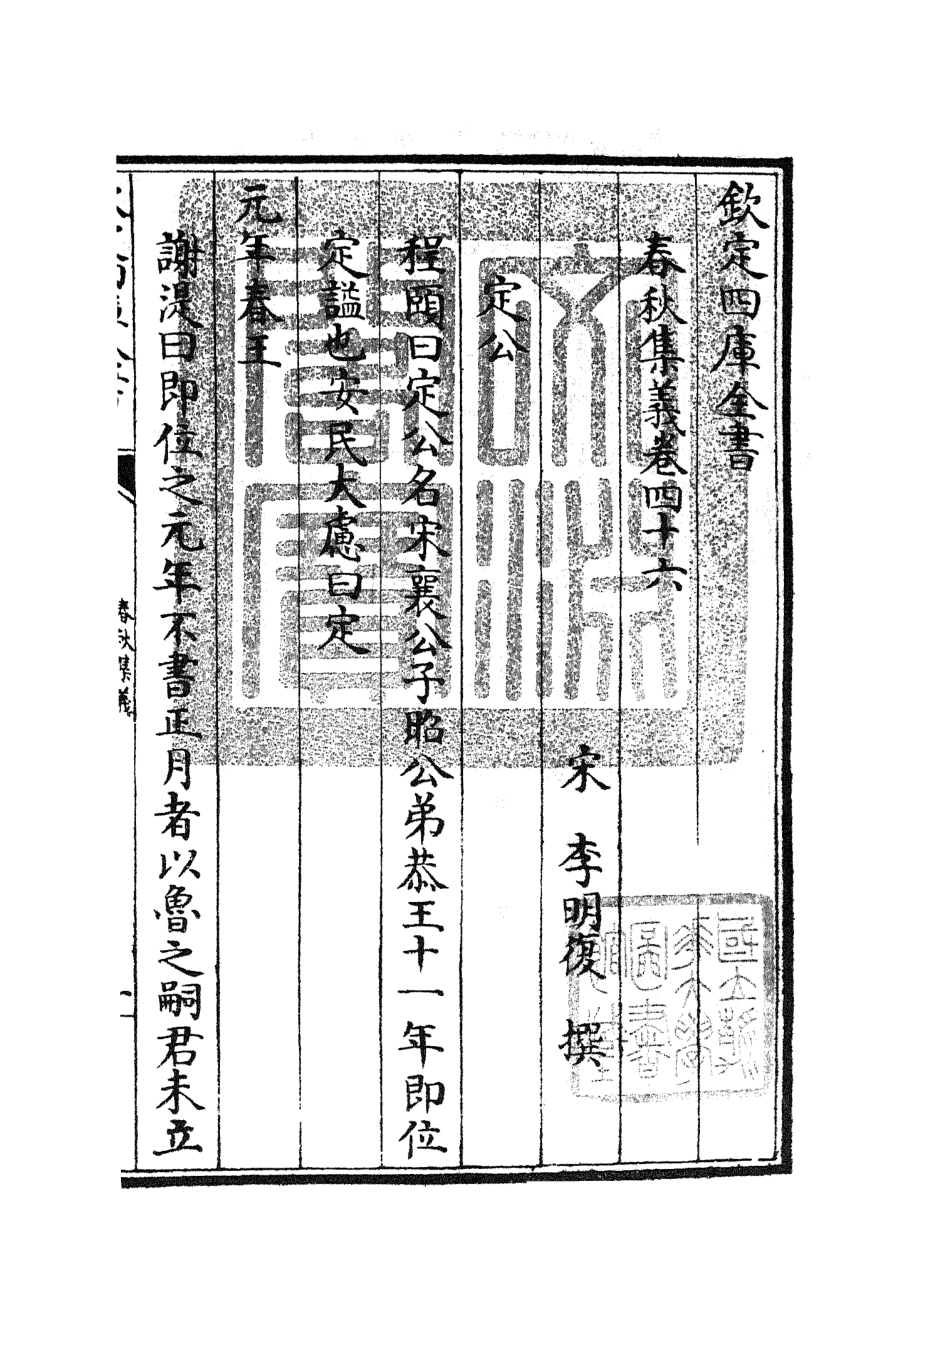 欽定四庫全書
春秋集義卷四十六
宋 李明復 撰
定公
程頤曰定公名宋襄公子昭公弟恭王十一年即位
定諡也安民大慮曰定
元年春王
謝湜曰即位之元年不書正月者以魯之嗣君未立
春秋集義